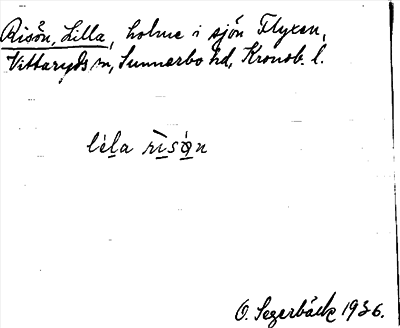 Risön, Lilla, holme i sjön Flyxen,
Vittaryds sn, Sunnerbo hd, Kronob. l.
léla rìsön
O. Segerbäck 1936.